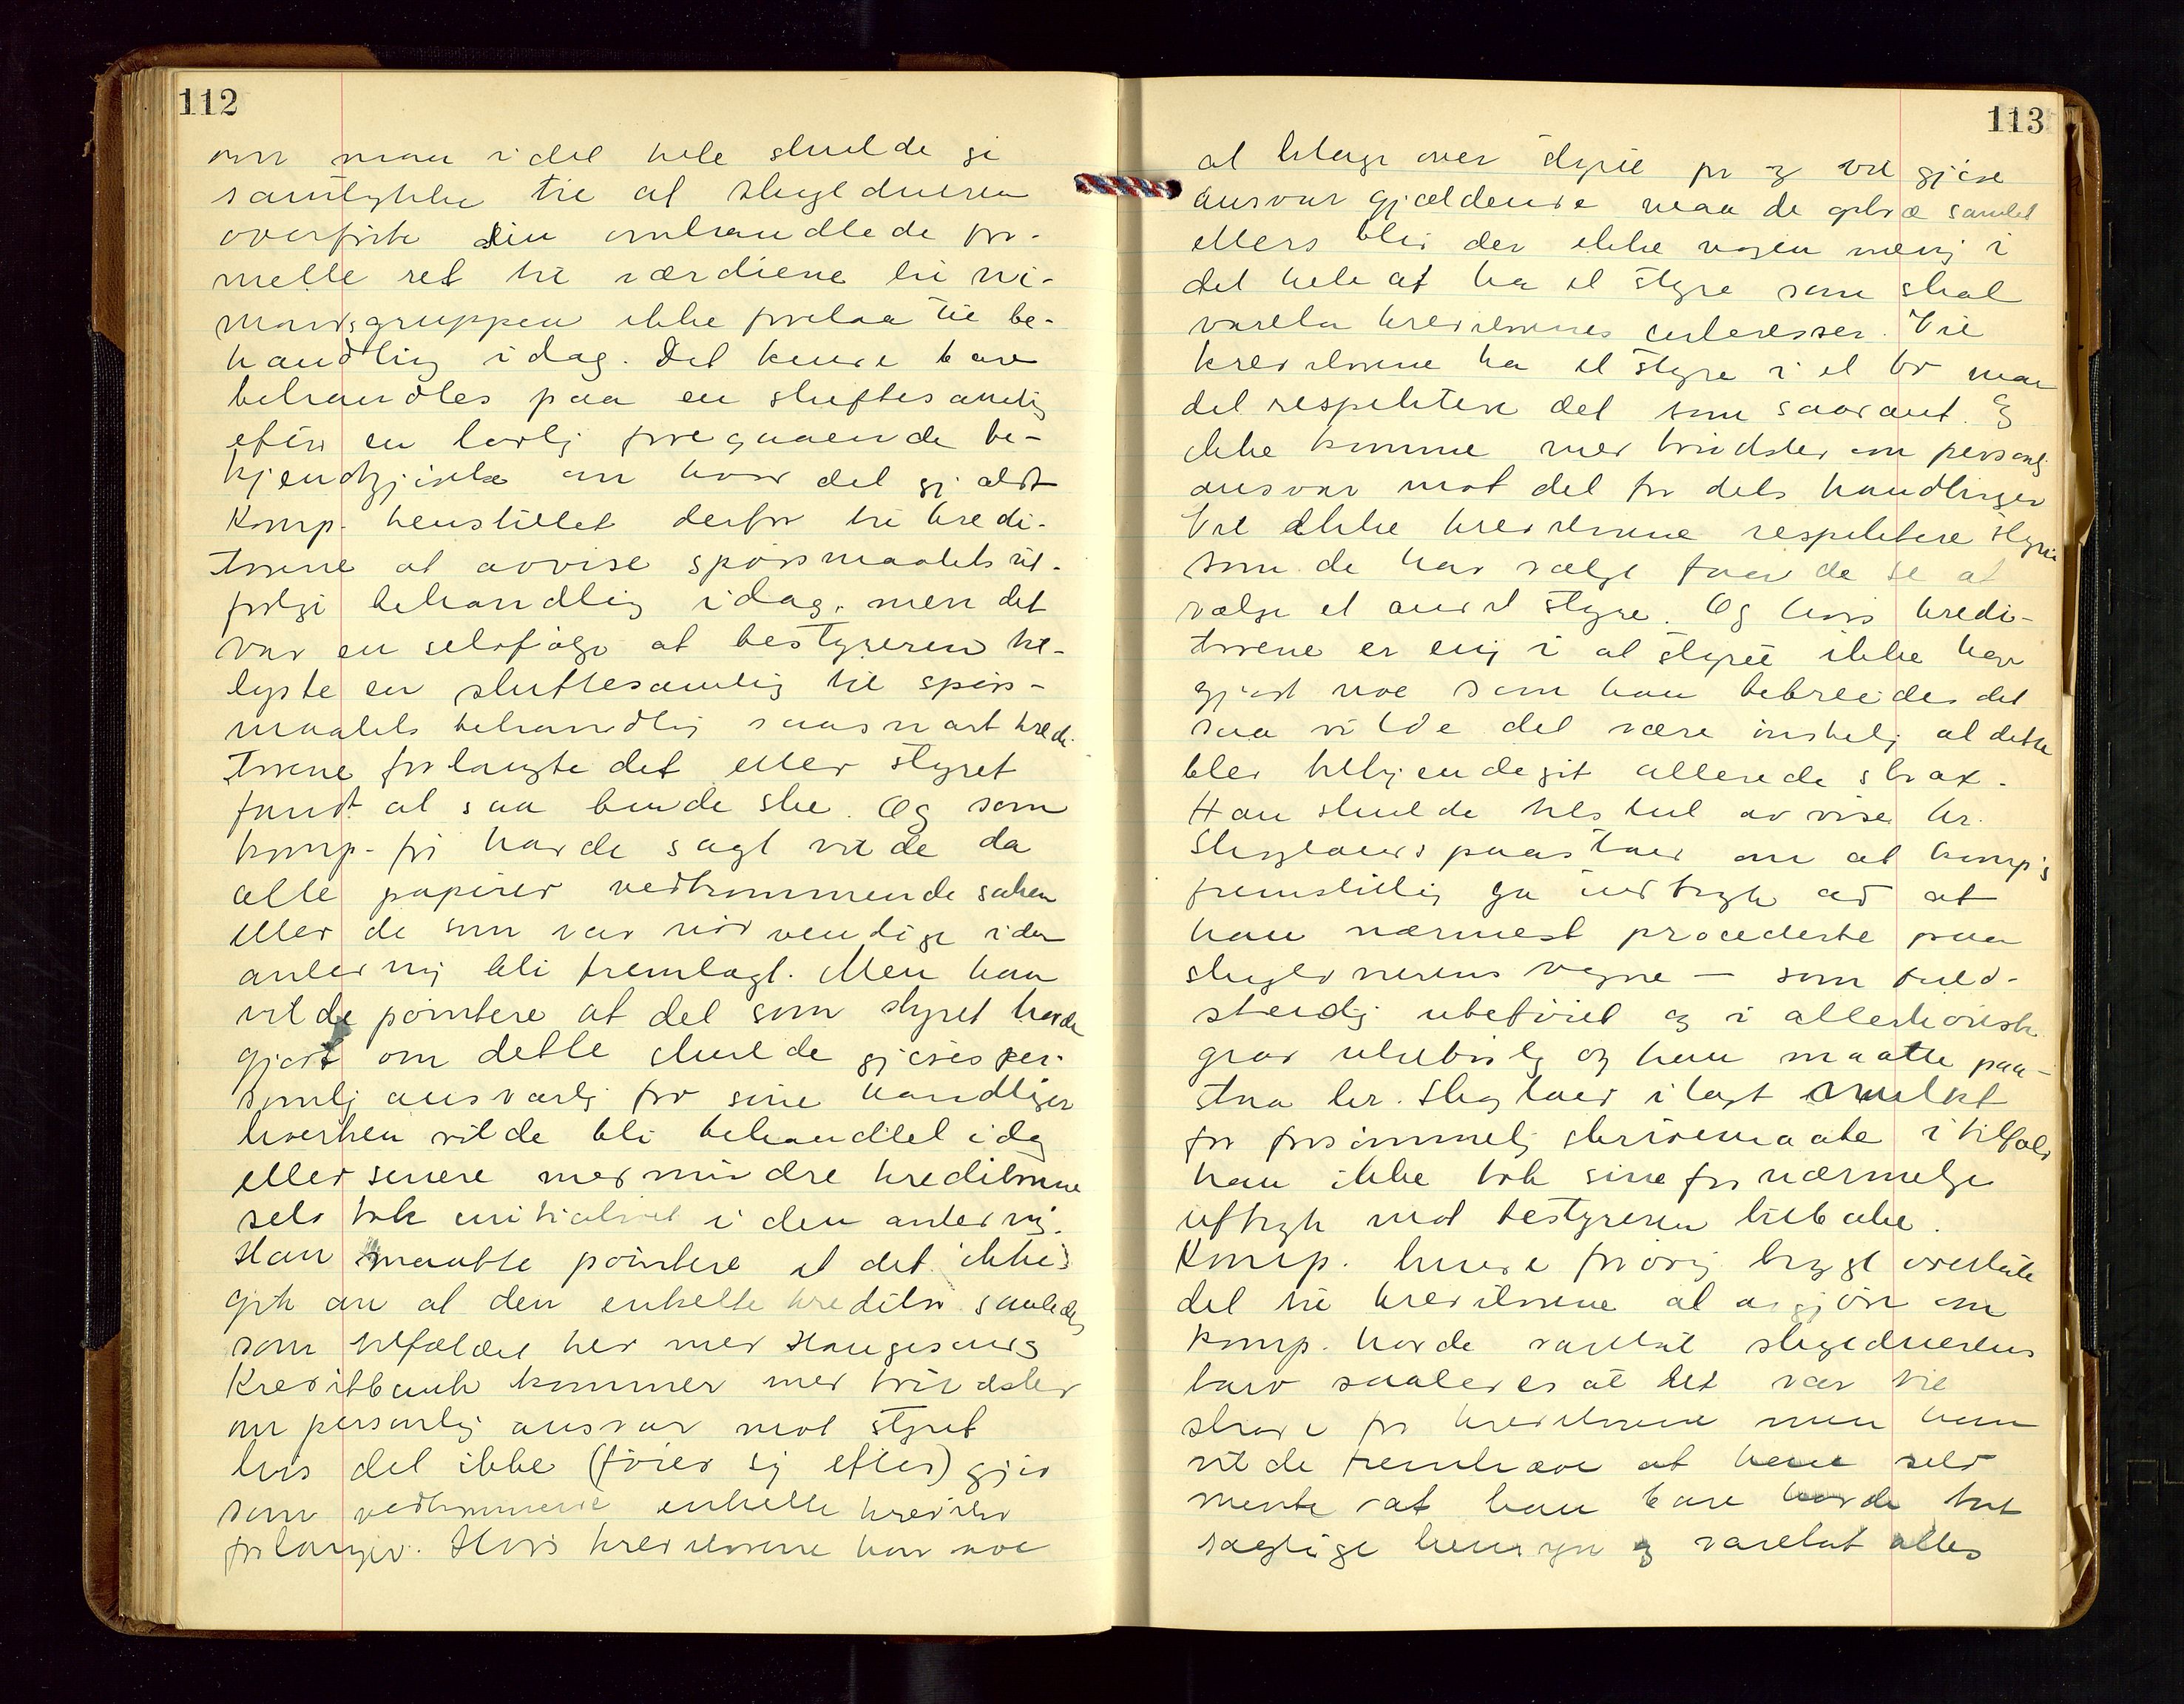 112
om man i det hele skulde gi
samtykke til at skyldneren
overførte sin omhandlede for-
melle ret til værdiene til ni-
mandsgruppen ikke forelaa til be-
handling idag. Det kunde bare
behandles paa en skiftesamling
efter en lovlig foregaaende be-
kjendtgjørelse om hvad det gjaldt
Komp. henstillet derfor til kredi-
torene at avvise spørsmaalets
behandling idag, men det
var en selvfølge at bestyreren til-
lyste en skiftesamling til spørs-
maalets behandling saasnart kredi-
torene forlangte det eller styret
fandt at saa burde ske. Og som
komp. før havde sagt vilde da
alle papirer vedkommende saken
eller de som var nødvendige i den
anledning bli fremlagt. Men han
vilde pointere at det som styret havde
gjort om dette skulde gjøres per-
sonlig ansvarlig for sine handlinger
hverken vilde bli behandlet idag
eller senere medmindre kreditorene
selv tok initiativet i den anledning.
Han maatte pointere at det ikke
gik an at den enkelte kreditor saaledes
som tilfældet her med Haugesunds
Kreditbank kommer med trudsler
om personlig ansvar mot styret
hvis det ikke (føier sig efter) gjør
som vedkommende enkelte kreditor
forlanger. Hvis kreditorene har noe
113
at klage over styret for og vil gjøre
ansvar gjældende maa de optræ samlet
ellers blir der ikke nogen mening i
det hele at ha et styre som skal
vareta kreditorenes interesser. Vil
kreditorene ha et styre i et bo maa
det respektere det som saadant. Og
ikke komme med trudsler om personlig
ansvar mot det for dets handlinger
Vil ikke kreditorene respektere styret
som de har valgt faar de se at
vælge et andet styre. Og hvis kredi-
torene er enig i at styret ikke har
gjort noe som kan bebreides det
saa vilde det være ønskelig at dette
blev tilkjendegit allerede strax.
Han skulde tilslut avvise hr.
Skogland paastand om at komp's
fremstilling ga indtryk av at
han nærmest procederte paa
skyldnerens vegne — som fuld-
stendig ubeføiet og i allerhøieste
grad utilbørlig og han maatte paa-
staa hr. Skogland ilagt mulkt
for forsømmelig skrivemaate i tilfælde
han ikke tok sine fornærmelige
uttryk mot bestyreren tilbake.
Komp. kunde forøvrig trygt overlate
det til kreditorene at avgjøre om
komp. havde varetat skyldnerens
tarv saaledes at det var til
skade for kreditorene men han
vilde fremhæve at han selv
mente at han bare havde tat
saglige hensyn og varetat alles